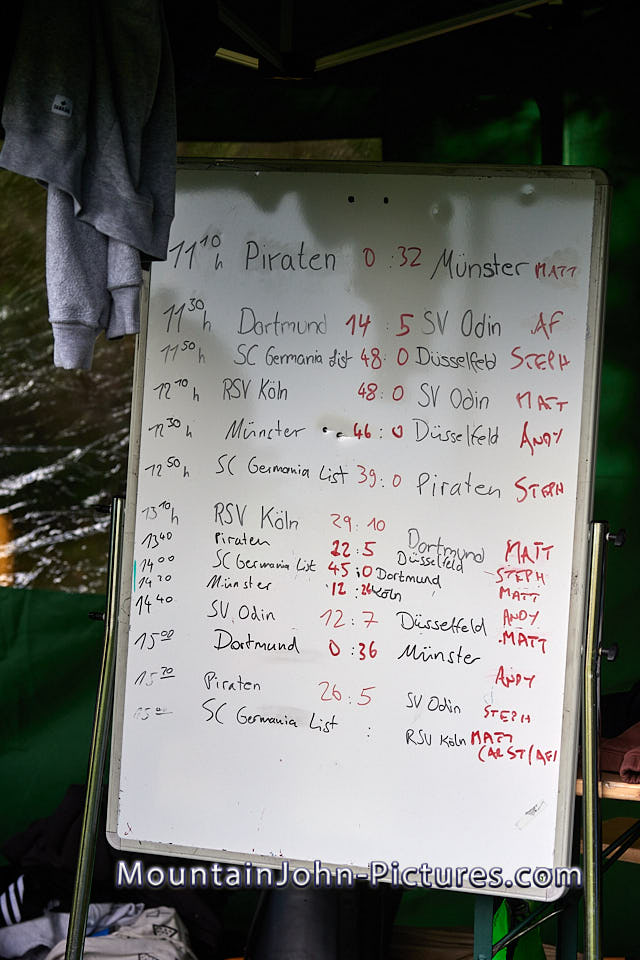 11 10 h Piraten 0 : 32 Münster MATT
11 30 h Dortmund 14 : 5 SV Odin AF
11 50 h SC Germania List 48 : 0 Düsselfeld STEPH
12 10 h RSV Köln 48 : 0 SV Odin MATT
12 30 h Münster 46 : 0 Düsselfeld ANDY
12 50 h SC Germania List 39 : 0 Piraten STEPH
13 10 h RSV Köln 29 : 10 Dortmund MATT
13 40 Piraten 22 : 5 Düsselfeld STEPH
14 00 SC Germania List 45 : 0 Dortmund MATT
14 20 Münster 12 : 24 Köln ANDY
14 40 SV Odin 12 : 7 Düsselfeld MATT
15 00 Dortmund 0 : 36 Münster ANDY
15 20 Piraten 26 : 5 SV Odin STEPH
SC Germania List : RSV Köln MATT
MountainJohn-Pictures.com